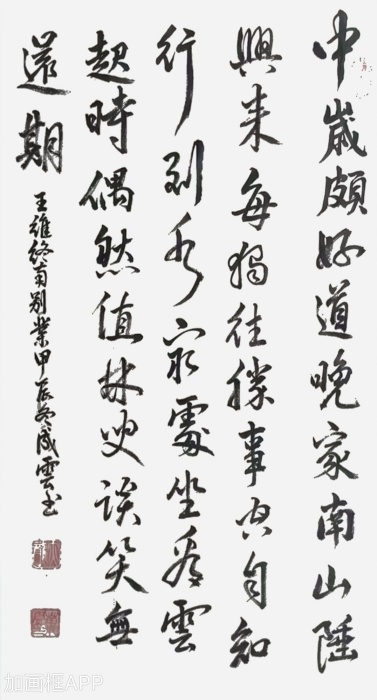 中歲頗好道晚家南山陲
興來每獨往勝事空自知
行到水窮處坐看雲
起時偶然值林叟談笑無
還期
王維終南別業甲辰冬成雲書
加画框APP